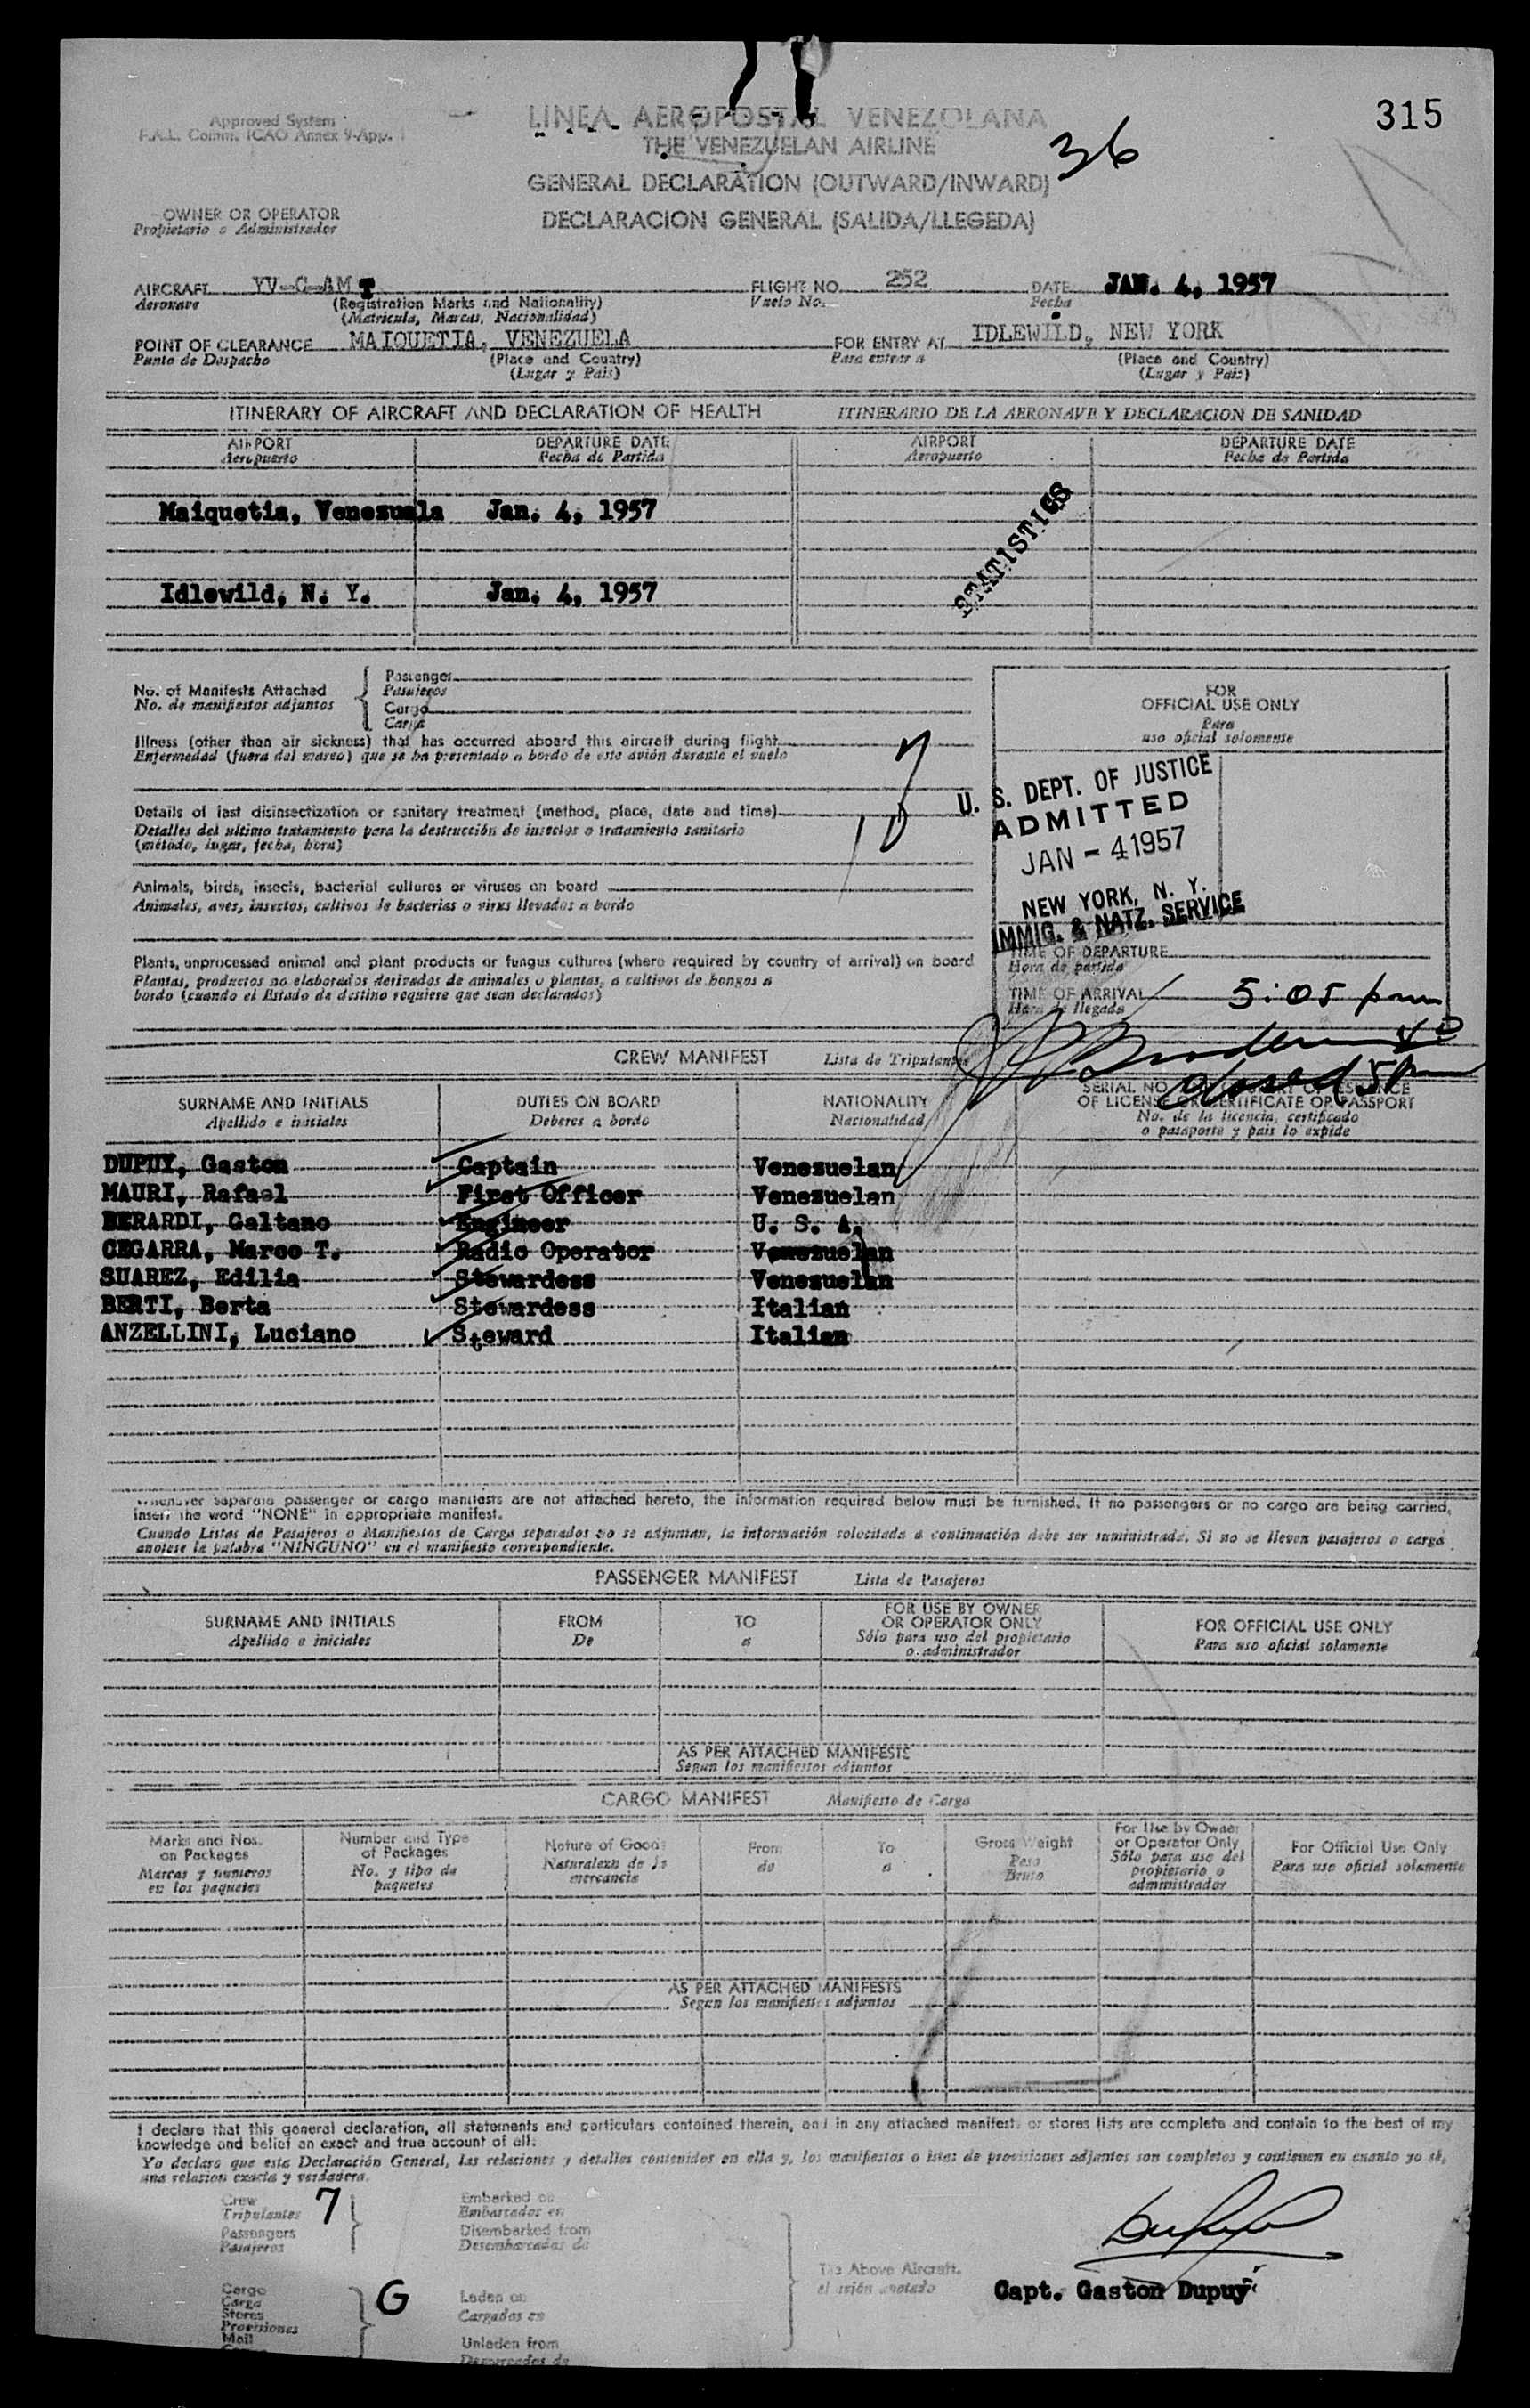 315
Approved System
F.A.L. Comm. ICAO Annex 9-App. 1
LINEA AEROPOSTAL VENEZOLANA
THE VENEZUELAN AIRLINE
36
GENERAL DECLARATION (OUTWARD/INWARD)
DECLARACION GENERAL (SALIDA/LLEGEDA)
OWNER OR OPERATOR
Propietario o Administrador
AIRCRAFT YV-C-AMT FLIGHT NO. 252 DATE JAN. 4, 1957
Aeronave (Registration Marks and Nationality) Vuelo No. Fecha
(Matricula, Marcas, Nacionalidad)
POINT OF CLEARANCE MAIQUETIA, VENEZUELA FOR ENTRY AT IDLEWILD, NEW YORK
Punto de Despacho (Place and Country) Para entrar a (Place and Country)
(Lugar y Pais) (Lugar y Pais)
ITINERARY OF AIRCRAFT AND DECLARATION OF HEALTH ITINERARIO DE LA AERONAVE Y DECLARACION DE SANIDAD
AIRPORT DEPARTURE DATE AIRPORT DEPARTURE DATE
Aeropuerto Fecha de Partida Aeropuerto Fecha de Partida
Maiquetia, Venezuela Jan. 4, 1957
STATISTICS
Idlewild, N. Y. Jan. 4, 1957
No. of Manifests Attached
No. de manifiestos adjuntos
Passenger
Pasajeros
Cargo
Carga
FOR
OFFICIAL USE ONLY
Para
uso oficial solamente
Illness (other than air sickness) that has occurred aboard this aircraft during flight
Enfermedad (fuera del mareo) que se ha presentado a bordo de este avión durante el vuelo
Details of last disinsectization or sanitary treatment (method, place, date and time)
Detalles del ultimo tratamiento para la destrucción de insectos o tratamiento sanitario
(método, lugar, fecha, hora)
U. S. DEPT. OF JUSTICE
ADMITTED
JAN - 4 1957
NEW YORK, N. Y.
IMMIG. & NATZ. SERVICE
Animals, birds, insects, bacterial cultures or viruses on board
Animales, aves, insectos, cultivos de bacterias o virus llevados a bordo
Plants, unprocessed animal and plant products or fungus cultures (where required by country of arrival) on board
Plantas, productos no elaborados derivados de animales o plantas, o cultivos de hongos a
bordo (cuando el Estado de destino requiere que sean declarados)
TIME OF DEPARTURE
Hora de partida
TIME OF ARRIVAL 5:05 pm
Hora de llegada
closed 5 pm
CREW MANIFEST Lista de Tripulantes
SURNAME AND INITIALS DUTIES ON BOARD NATIONALITY SERIAL NO.
Apellido e iniciales Deberes a bordo Nacionalidad OF LICENSE OR CERTIFICATE OR PASSPORT
No. de la licencia, certificado
o pasaporte y pais lo expide
DUPUY, Gaston Captain Venezuelan
MAURI, Rafael First Officer Venezuelan
BERARDI, Galtano Engineer U. S. A.
CEGARRA, Marco T. Radio Operator Venezuelan
SUAREZ, Edilia Stewardess Venezuelan
BERTI, Berta Stewardess Italian
ANZELLINI, Luciano Steward Italian
Whenever separate passenger or cargo manifests are not attached hereto, the information required below must be furnished. If no passengers or no cargo are being carried,
insert the word "NONE" in appropriate manifest.
Cuando Listas de Pasajeros o Manifiestos de Carga separados no se adjuntan, la información solocitada a continuación debe ser suministrada. Si no se lleven pasajeros o carga
anotese la palabra "NINGUNO" en el manifiesto correspondiente.
PASSENGER MANIFEST Lista de Pasajeros
SURNAME AND INITIALS FROM TO FOR USE BY OWNER OR OPERATOR ONLY FOR OFFICIAL USE ONLY
Apellido e iniciales De a Sólo para uso del propietario o administrador Para uso oficial solamente
AS PER ATTACHED MANIFESTS
Segun los manifiestos adjuntos
CARGO MANIFEST Manifiesto de Carga
Marks and Nos. on Packages Number and Type of Packages Nature of Goods From To Gross Weight For Use by Owner or Operator Only For Official Use Only
Marcas y numeros en los paquetes No. y tipo de paquetes Naturaleza de la mercancia de a Peso Bruto Sólo para uso del propietario o administrador Para uso oficial solamente
AS PER ATTACHED MANIFESTS
Segun los manifiestos adjuntos
I declare that this general declaration, all statements and particulars contained therein, and in any attached manifests or stores lists are complete and contain to the best of my
knowledge and belief an exact and true account of all:
Yo declaro que esta Declaración General, las relaciones y detalles contenidos en ella y, los manifiestos o listas de provisiones adjuntos son completos y contienen en cuanto yo sé,
una relacion exacta y verdadera.
Crew 7 Embarked on
Tripulantes Embarcados en
Passengers Disembarked from
Pasajeros Desembarcados de
The Above Aircraft.
el avión anotado
Capt. Gaston Dupuy
Cargo G Laden on
Carga Cargados en
Stores
Provisiones
Mail Unladen from
Descargados de